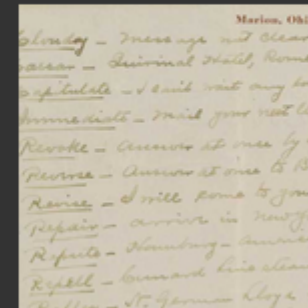 Marion, Ohi
Cloudy – message not clear
Vassar – Quirinal Hotel, Rome
Capitulate – I can't wait any lo
Immediate – Mail your next
Revoke – Answer at once by
Reverse – Answer at once to
Revise – I will come to you
Repair – arrive in New
Repute – Hamburg – Ameri
Repell – Cunard line
– St. German Lloyd